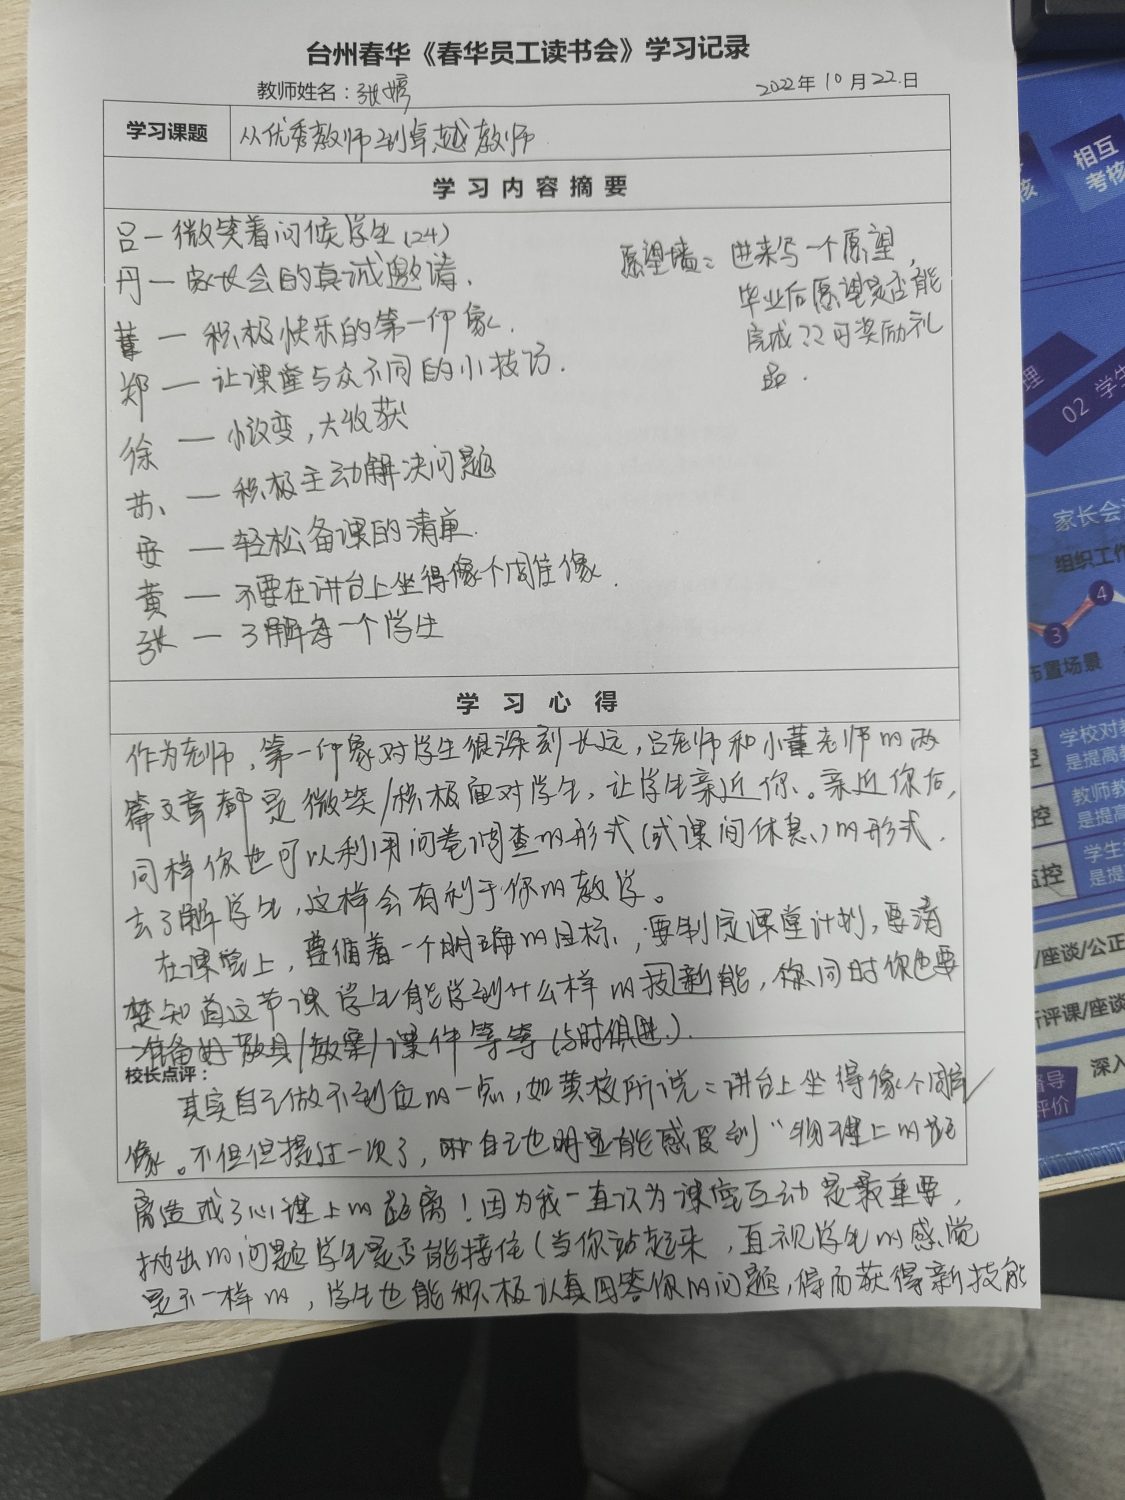 台州春华《春华员工读书会》学习记录
教师姓名：张婷
2022年10月22日
学习课题
从优秀教师到卓越教师
学习内容摘要
吕—微笑着问候学生（24）
丹—家长会的真诚邀请.
董—积极快乐的第一印象.
郑—让课堂与众不同的小技巧.
徐—小改变，大收获
苏、—积极主动解决问题
安—轻松备课的清单.
黄—不要在讲台上坐得像个周佳像.
张—了解每一个学生
愿望墙：进来写一个愿望，
毕业后愿望是否能
完成？？可奖励礼
品.
学习心得
作为老师，第一印象对学生很深刻长远，吕老师和小董老师的两
篇文章都是微笑/积极面对学生，让学生亲近你。亲近你后，
同样你也可以利用问卷调查的形式（或课间休息）的形式.
去了解学生，这样会有利于你的教学。
在课堂上，遵循着一个明确的目标，要制定课堂计划，要清
楚知道这节课学生能学到什么样的技新能，你同时你也要
准备好教具/教案/课件等等（与时俱进）.
校长点评：
其实自己做不到位的一点，如黄校所说：讲台上坐得像个周佳
像。不但但提过一次了，我自己也明显能感受到“物理上的距
离造成了心理上的距离！因为我一直认为课堂互动是最重要，
抛出的问题学生是否能接住（当你站起来，直视学生的感觉
是不一样的，学生也能积极认真回答你的问题，得而获得新技能
相互
考核
核
理
02 学生
家长会
组织工作
4
3
布置场景
学校对教
是提高教
控
教师教
是提高
控
学生
是提
监控
/座谈/公正
听评课/座谈
督导
评价
深入